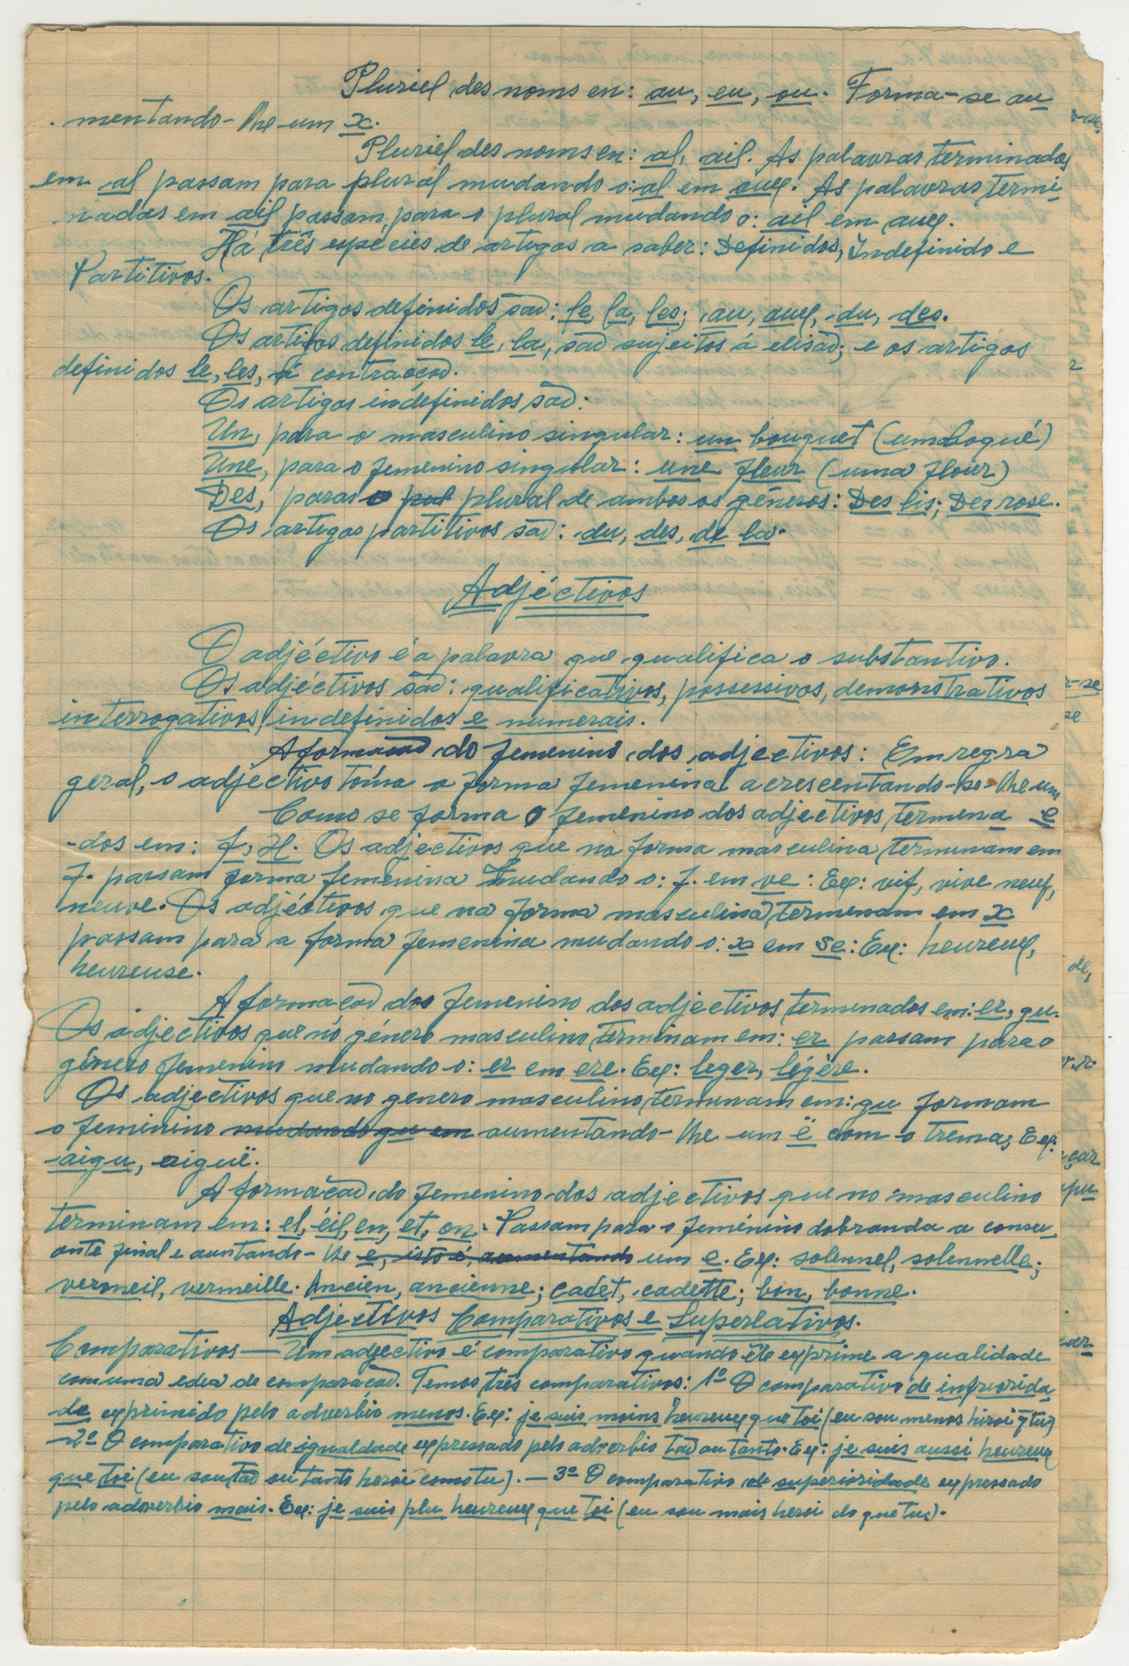 Pluriel des noms en: au, eu, ou. Forma-se au
mentando-lhe um x.
Pluriel des noms en: al, ail. As palavras terminadas
em al passam para plural mudando o: al em aux. As palavras termi-
nadas em ail passam para o plural mudando o: ail em aux.
Há três espécies de artigos a saber: Definidos, Indefinido e
Partitivos.
Os artigos definidos são: le, la, les; au, aux, du, des.
Os artigos definidos le, la, são sujeitos á elisão; e os artigos
definidos le, les, á contração.
Os artigos indefinidos são:
Un, para o masculino singular: un bouquet (um boqué)
Une, para o femenino singular: une fleur (uma flour)
Des, paras o plural de ambos os géneros: Des lis; Des rose.
Os artigos partitivos são: du, des, de la.
Adjéctivos
O adjéctivo é a palavra que qualifica o substantivo.
Os adjéctivos são: qualificativos, possessivos, demonstrativos
interrogativos, indefinidos e numerais.
A formação do femenino dos adjectivos: Em regra
geral, o adjectivo toma a forma femenina acrescentando-se-lhe um
Como se forma o femenino dos adjectivos termena e
-dos em: f, x. Os adjectivos que na forma masculina terminam em
f. passam forma femenina mudando o: f. em ve: Ex: vif, vive neuf,
neuve. Os adjéctivos que na forma masculina terminam em x
passam para a forma femenina mudando o: x em se: Ex: heureux,
heureuse.
A formação dos femenino dos adjectivos terminados em: er, gu.
Os adjectivos que no género masculino terminam em: er passam para o
género femenino mudando o: er em ere. Ex: leger, légère.
Os adjectivos que no genero masculino terminam em: gu formam
o feminino mudando gu em aumentando-lhe um ë com o trema; Ex:
aigu, aiguë.
A formação do femenino dos adjectivos que no masculino
terminam em: el, éil, en, et, on. Passam para o femenino dobranda a conso,
ante final e auntando-lhe e, isto é, aumentando um e. Ex: solennel, solennelle;
vermeil, vermeille. Ancien, ancienne; cadet, cadette; bon, bonne.
Adjectivos Comparativos e Superlativos.
Comparativos — Um adjectivo é comparativo quando êle exprime a qualidade
com uma edea de comparação. Temos três comparativos: 1º O comparativo de inferiorida,
de exprimido pelo advérbio menos. Ex: je suis moins heureux que toi (eu sou menos hiroi q̃ tu)
—2º O comparativo de igualdade expressado pelo adverbio tão ou tanto. Ex: je suis aussi heureux
que toi (eu sou tão ou tanto heroi como tu). — 3º O comparativo de superioridade expressado
pelo adverbio mais. Ex: je suis plu heureux que toi (eu sou mais heroi do que tu).